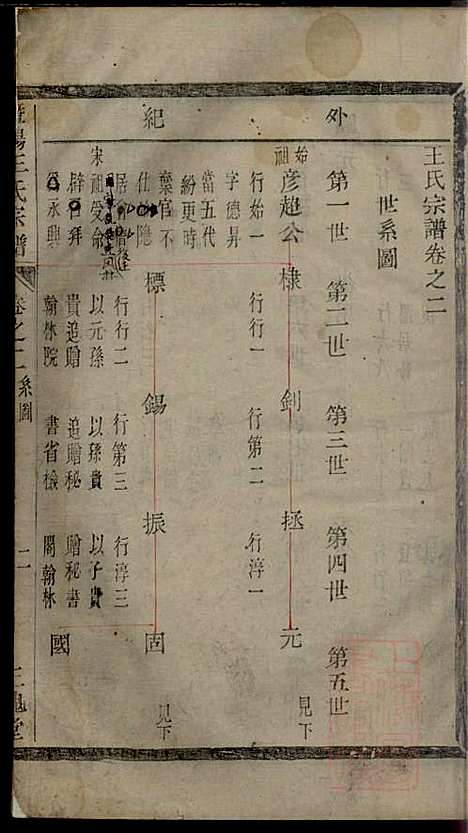 王氏宗譜卷之二
世系圖
外紀
第一世 第二世 第三世 第四世 第五世
始祖 彦超公 棣 釗 拯 元 見下
行始一 行行一 行第二 行淳一
字德昇
當五代
紛更時
棄官不 標 錫 振 固 見下
仕隱
居
宋祖受命 行行二 行第三 行淳三
辟召拜 以元孫 以孫貴 以子貴
永興 貴追贈 追贈秘 贈秘書
翰林院 書省檢 閣翰林
國
王氏宗譜 卷之二 系圖 二